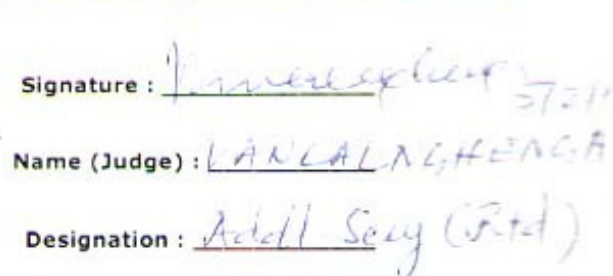 Signature :
Name (Judge) : LANLALNGHENGA
Designation : Addl Secy (Rtd)